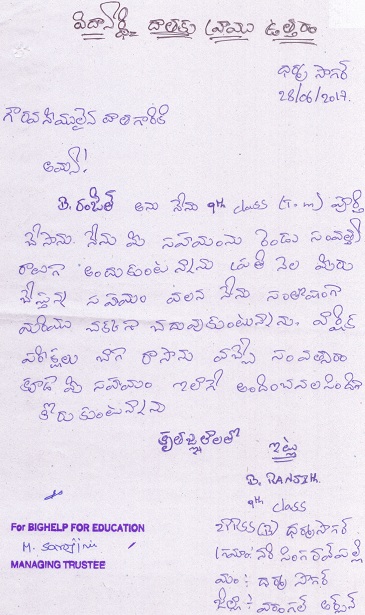 విద్యార్థి దాతకు వ్రాయు ఉత్తరం
ధర్మ సాగర్
28/06/2017.
గౌరవనీయులైన దాత గారికి
అమ్మా!
B. రంజిత్ అను నేను 9th class (T.m) పూర్తి
చేసాను. నేను మీ సహాయంను రెండు సంవత్స
రాలుగా అందుకుంటున్నాను ప్రతి నెల మీరు
చేస్తున్న సహాయం వలన నేను సంతోషంగా
మరియు చక్కగా చదువుకుంటున్నాను. వార్షిక
పరీక్షలు బాగా రాసాను వచ్చే సంవత్సరం
కూడా మీ సహాయం ఇలాగే అందించవలసిందిగా
కోరుకుంటున్నాను
కృతజ్ఞతలతో
ఇట్లు
B. RANJITH.
9th class
ZPPSS(B) ధర్మసాగర్.
గ్రామం: నర్సింగరావుపల్లి
మం: ధర్మ సాగర్
జిల్లా: వరంగల్ అర్బన్
For BIGHELP FOR EDUCATION
M. Sarojini
MANAGING TRUSTEE